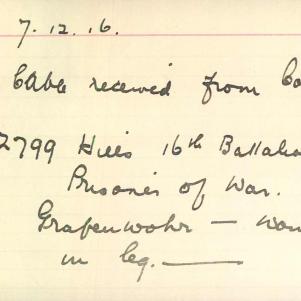 7.12.16.
Cable received from Co
2799 Hills 16th Battalio
Prisoner of War.
Grafenwohr — wou
in leg. —